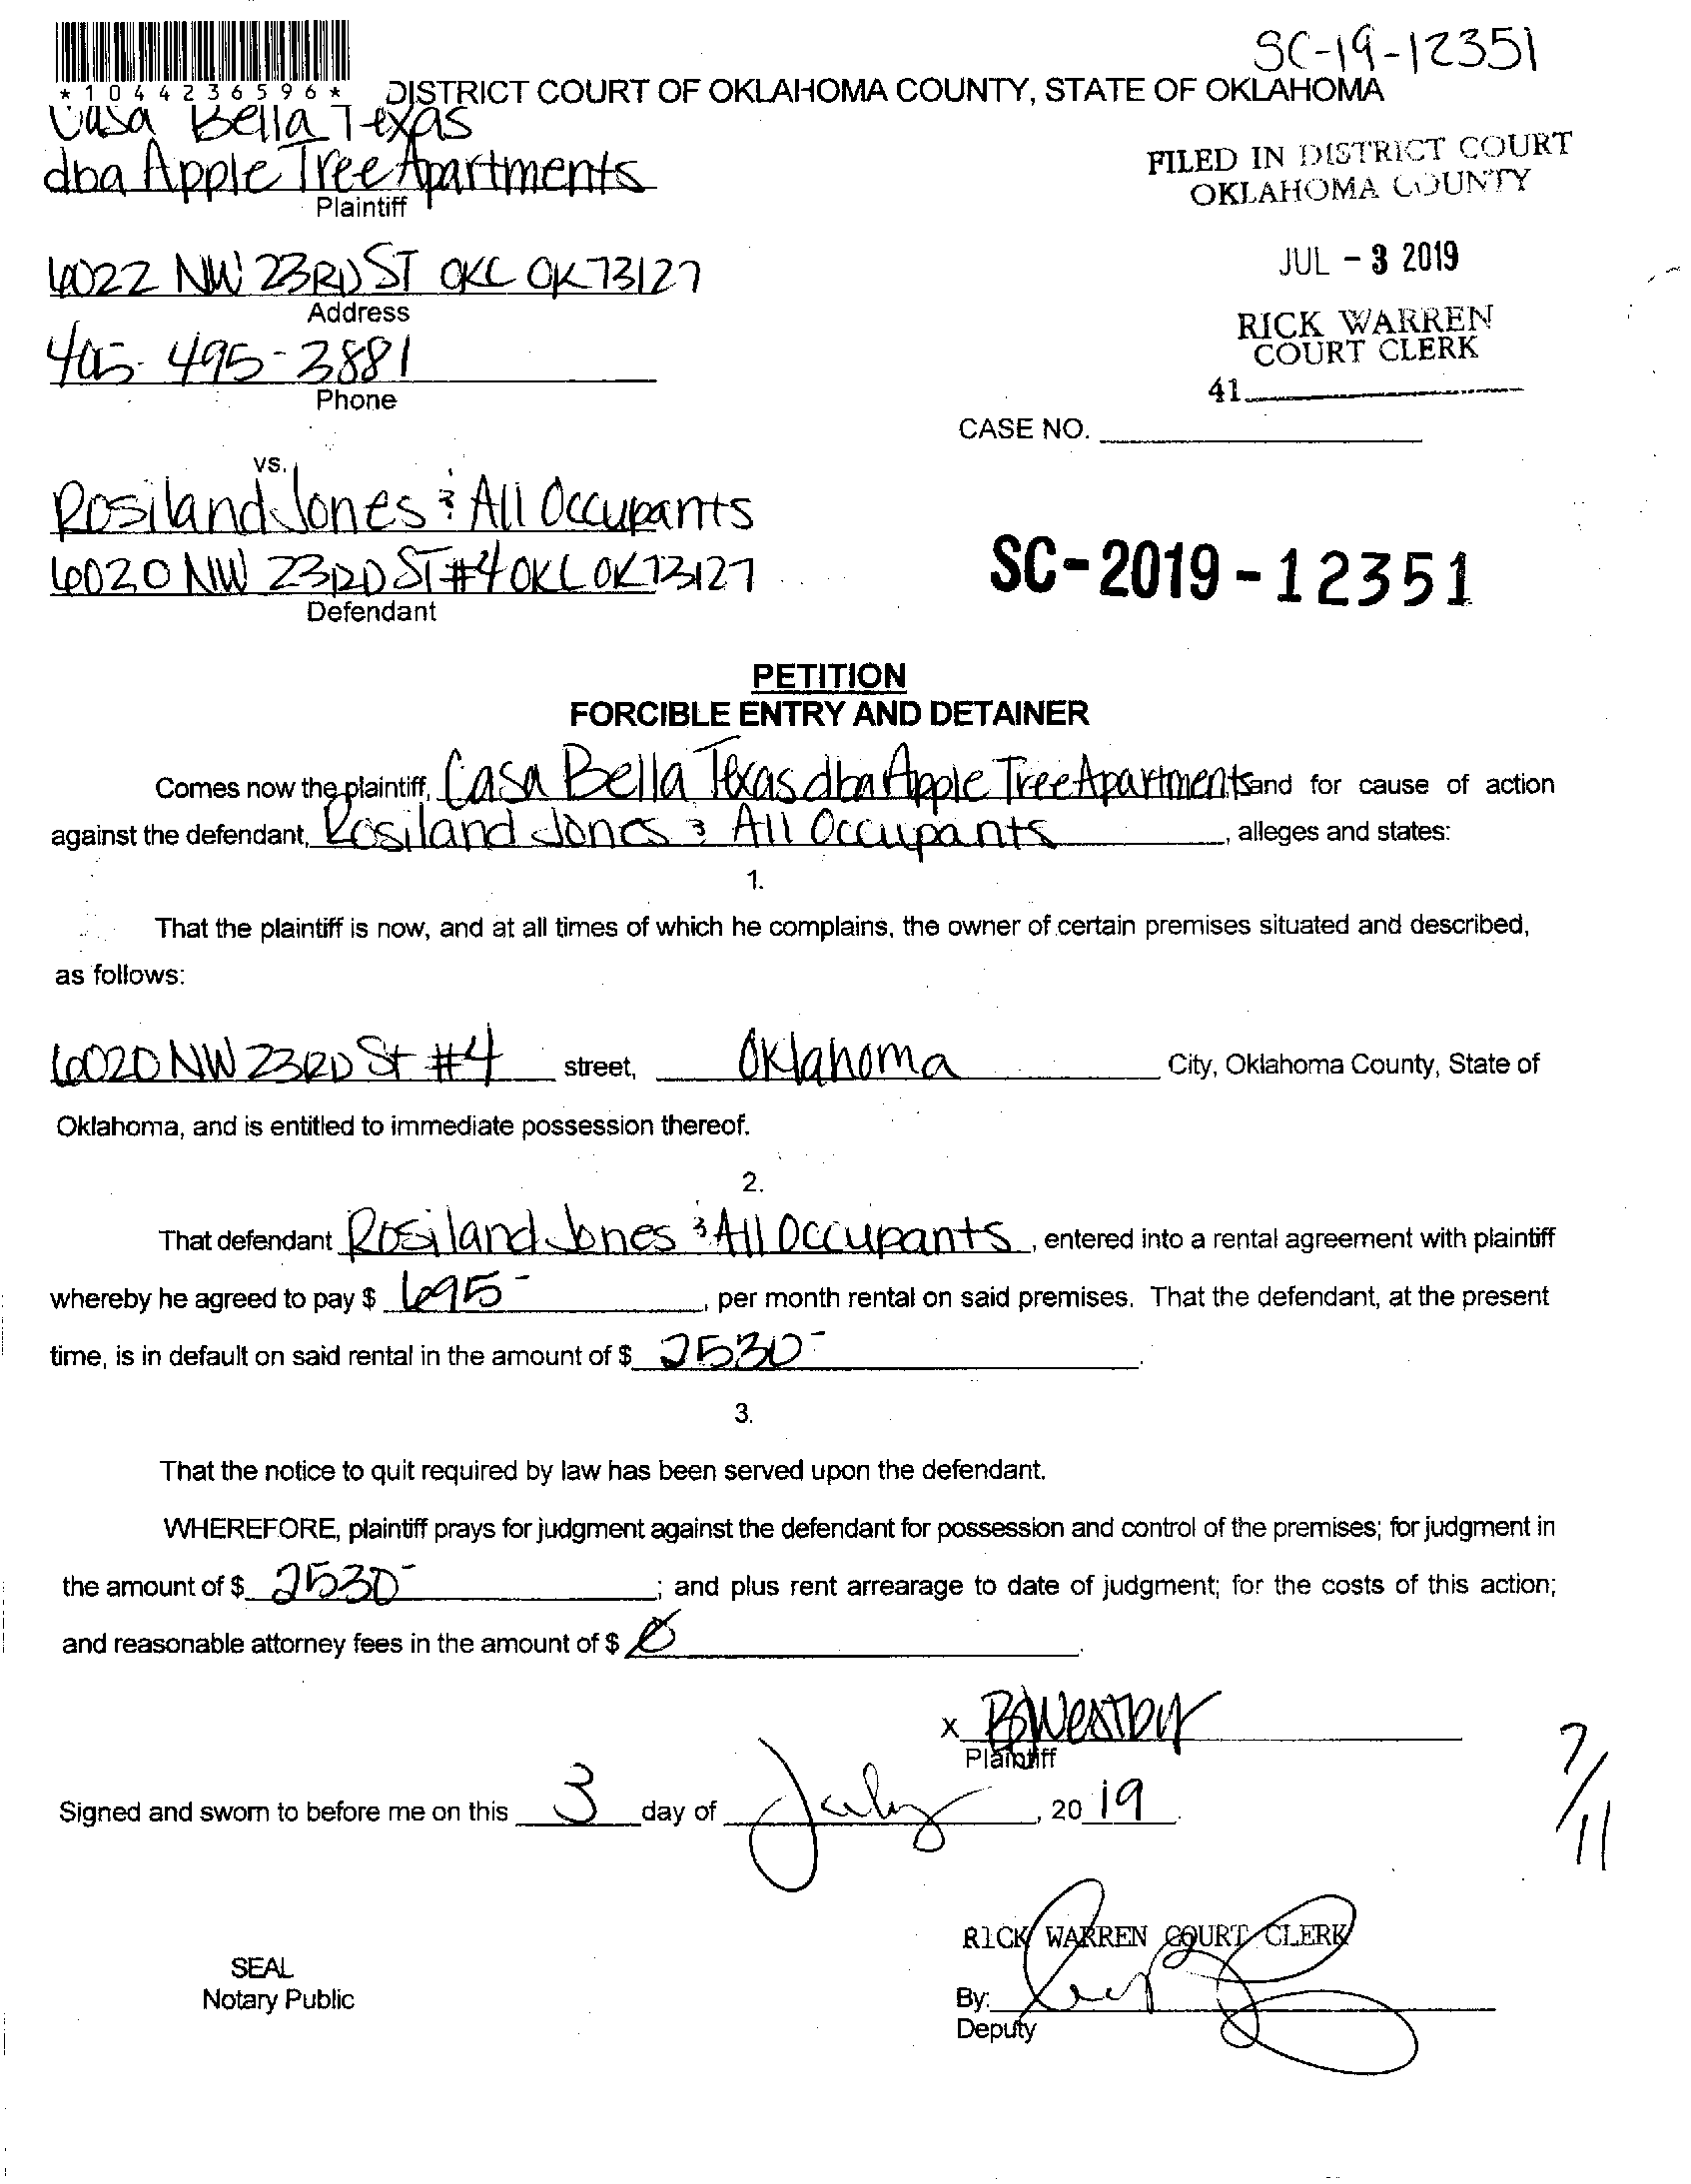 SC-19-12351
*1044236596*
DISTRICT COURT OF OKLAHOMA COUNTY, STATE OF OKLAHOMA
Casa Bella Texas
dba Apple Tree Apartments
Plaintiff
FILED IN DISTRICT COURT
OKLAHOMA COUNTY
6022 NW 23RD ST OKC OK 73127
Address
JUL - 3 2019
405-495-3881
Phone
RICK WARREN
COURT CLERK
41
CASE NO.
vs.
Rosiland Jones & All Occupants
6020 NW 23RD ST #4 OKC OK 73127
Defendant
SC-2019-12351
PETITION
FORCIBLE ENTRY AND DETAINER
Comes now the plaintiff, Casa Bella Texas dba Apple Tree Apartments and for cause of action
against the defendant, Rosiland Jones & All Occupants, alleges and states:
1.
That the plaintiff is now, and at all times of which he complains, the owner of certain premises situated and described,
as follows:
6020 NW 23RD St #4 street, Oklahoma City, Oklahoma County, State of
Oklahoma, and is entitled to immediate possession thereof.
2.
That defendant Rosiland Jones & All Occupants, entered into a rental agreement with plaintiff
whereby he agreed to pay $ 695-, per month rental on said premises. That the defendant, at the present
time, is in default on said rental in the amount of $ 2530-.
3.
That the notice to quit required by law has been served upon the defendant.
WHEREFORE, plaintiff prays for judgment against the defendant for possession and control of the premises; for judgment in
the amount of $ 2530-; and plus rent arrearage to date of judgment; for the costs of this action;
and reasonable attorney fees in the amount of $ Ø.
X
Plaintiff
Signed and sworn to before me on this 3 day of July, 2019.
7/11
RICK WARREN COURT CLERK
SEAL
Notary Public
By:
Deputy